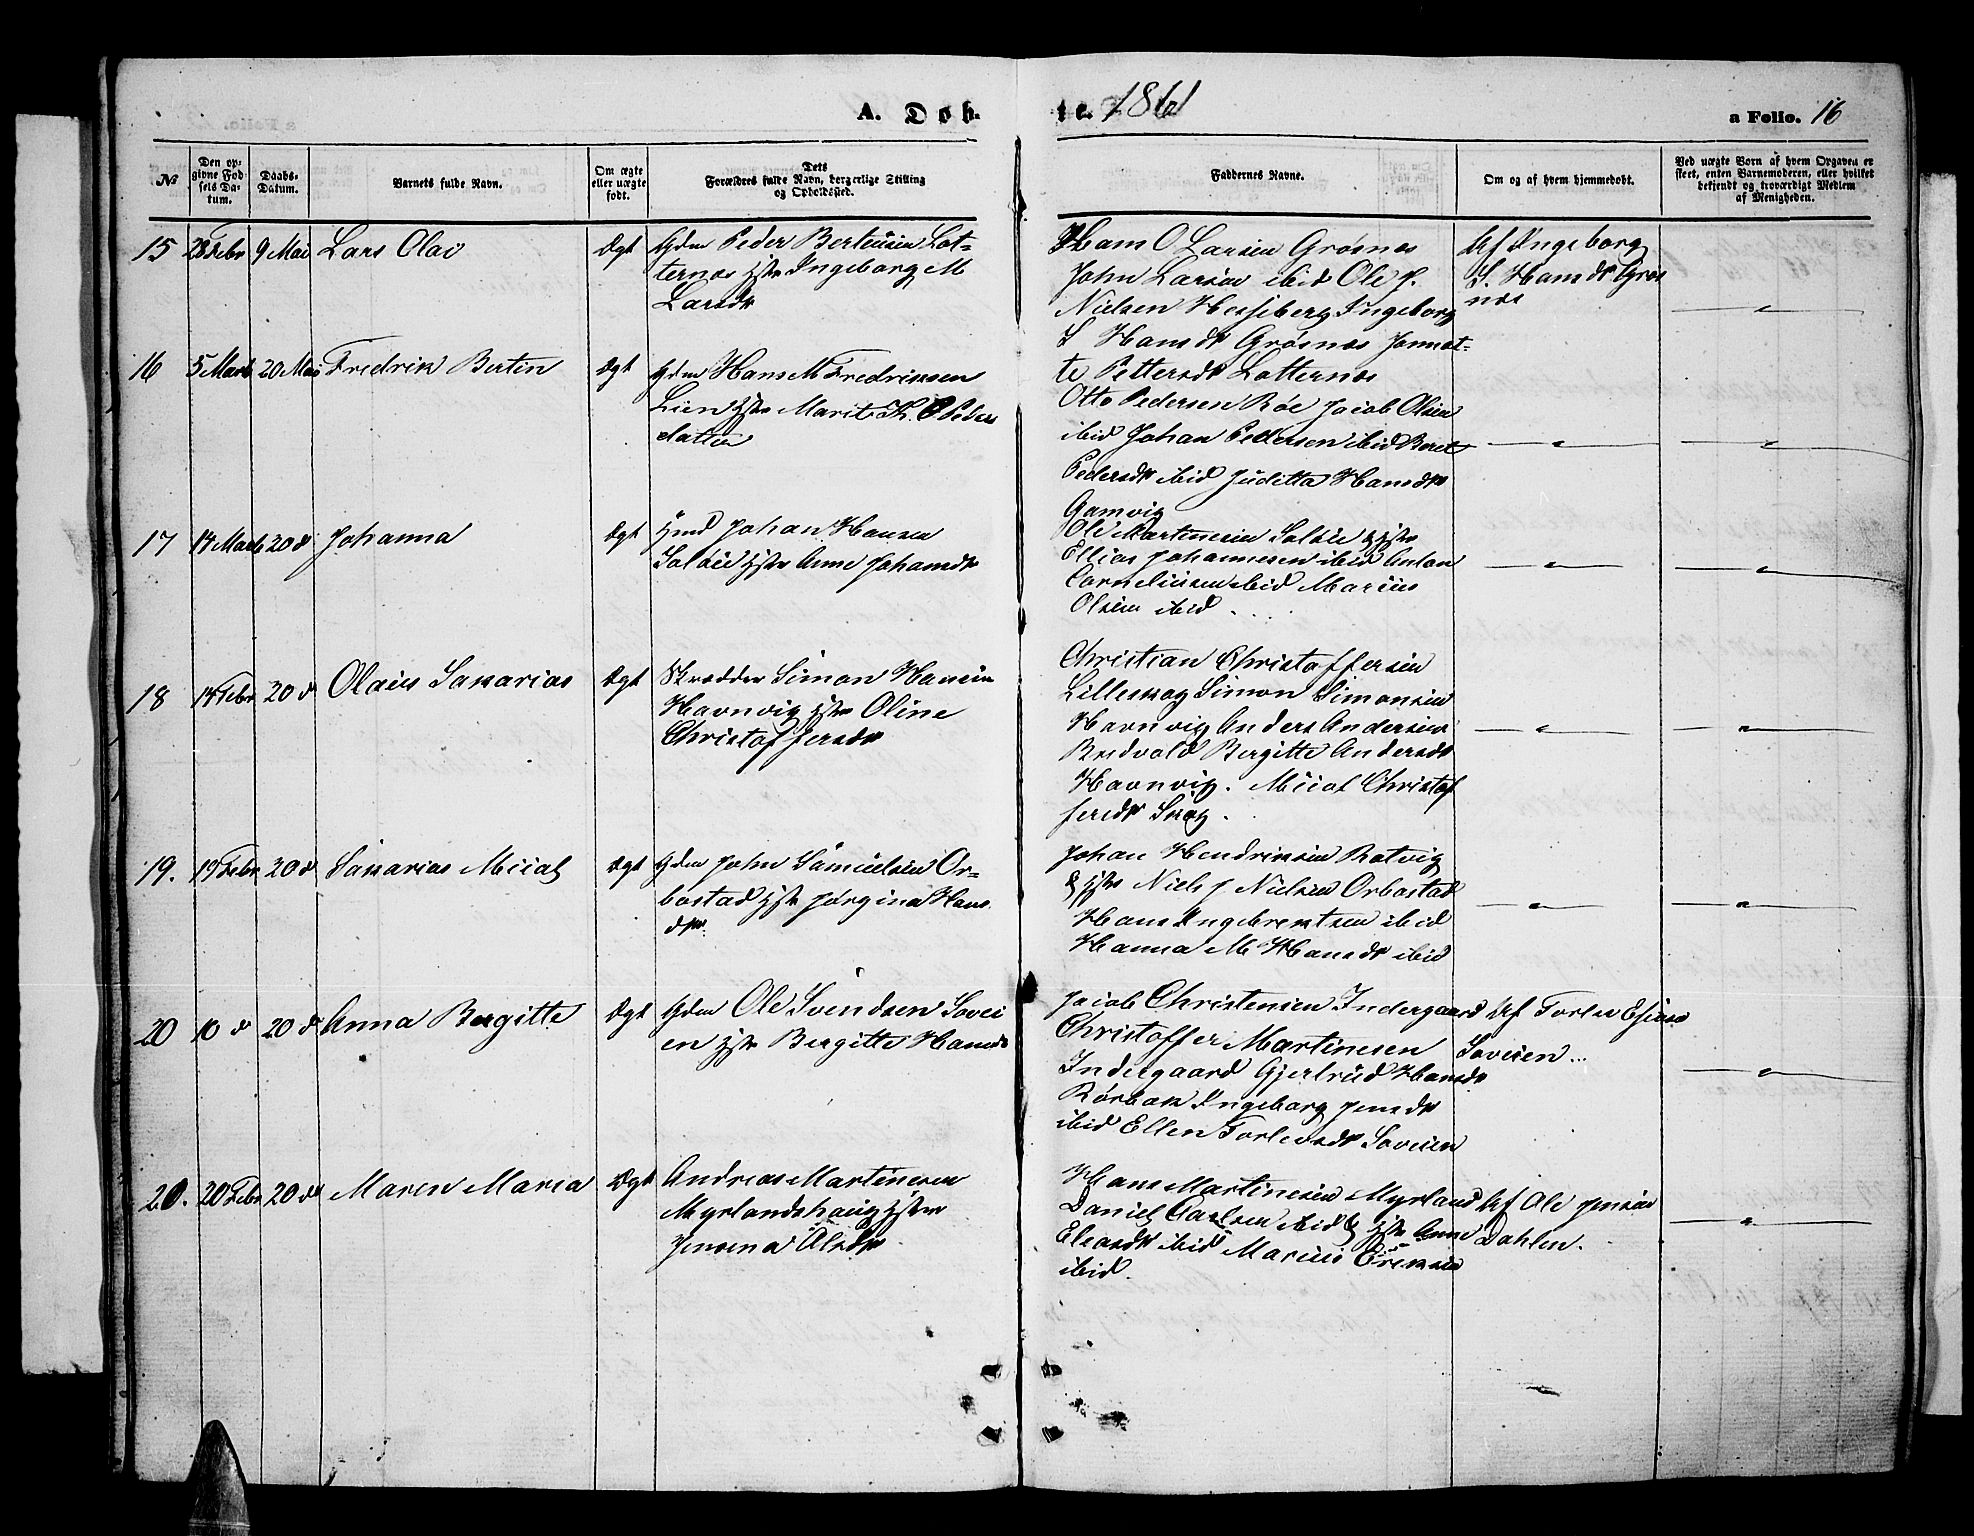 A. Døb-
te. 1861
a Folio. 16
№
Den op-
givne Fød-
sels Da-
tum.
Daabs-
Datum.
Barnets fulde Navn.
Om ægte
eller uægte
født.
Dets
Forældres fulde Navn, borgerlige Stilling
og Opholdssted.
Faddernes Navne.
Om og af hvem hjemmedøbt.
Ved uægte Børn af hvem Opgaven er
skeet, enten Barnemoderen, eller hvilket
bekjendt og troværdigt Medlem
af Menigheden.
15 28 Febr 9 Mai Lars Olai Ægt Gdm Peder Berteusen Lat-
ternæs Hstr Ingeborg M
Larsdr
Hans O Larsen Grøsnes
John Larsen ibid Ole P.
Nielsen Hessjberg Ingeborg
S Hansdr Grøsnes Jonnet-
te Pettersdr Latternæs
Af Ingeborg
S. Hansdr Grøs
nes
16 5 Marts 20 Mai Fredrik Bertin Ægt Gdm Hans M Fredriksen
Lien Hstr Marit K. Peders
datter
Otto Pedersen Røe Jacob Olsen
ibid Johan Pedersen ibid Beret
Pedersdr ibid Juditta Hansdr
Gamvig
17 14 Marts 20 d Johanna Ægt Hmd Johan Hansen
Saløie Hstr Anne Johansdr
Ole Martinesen Saløie & Hstr
Ellias Johannesen ibid Anton
Corneliusen ibid Marius
Olsen ibid.
18 14 Febr 20 d Olaus Sakarias Ægt Skrædder Simon Hansen
Havnvig Hstr Oline
Christoffersdr
Christian Christoffersen
Lilleskog Simon Simonsen
Havnvig Anders Andersen
Bredvold Bergitte Andersdr
Havnvig. Miial Christof
fersdr Skog.
19. 19 Febr 20 d Sakarias Miial Ægt Gdm John Samuelsen Or-
bostad Hstr Jørgina Hans
dr.
Johan Hendriksen Rotvig
& Hstr Niels J Nielsen Orbostad
Hans Ingebrektsen ibid
Hanna M Hansdr ibid
20 10 d 20 d Anna Bergitte Ægt Gdm Ole Svendsen Sovei
en Hstr Bergitte Hansdr
Jacob Christensen Indergaard
Christoffer Martinesen
Indergaard Gjertrud Hansdr
Rørbak Ingeborg Jensdr
ibid Ellen Torlevsdr Soveien
Af Torlev
Soveien
20. 20 Febr 20 d Maren Maria Ægt Andreas Martinesen
Myrlandshaug Hstr
Jensena Olsdr
Hans Martinesen Myrland
Daniel Carlsen ibid & Hstr Anne
Eleasdr ibid Marius Eriksen
ibid.
Af Ole Jensen
Dahlen.